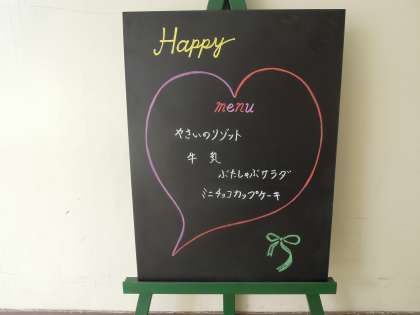 Happy
menu
やさいのリゾット
牛乳
ぶたしゃぶサラダ
ミニチョコカップケーキ